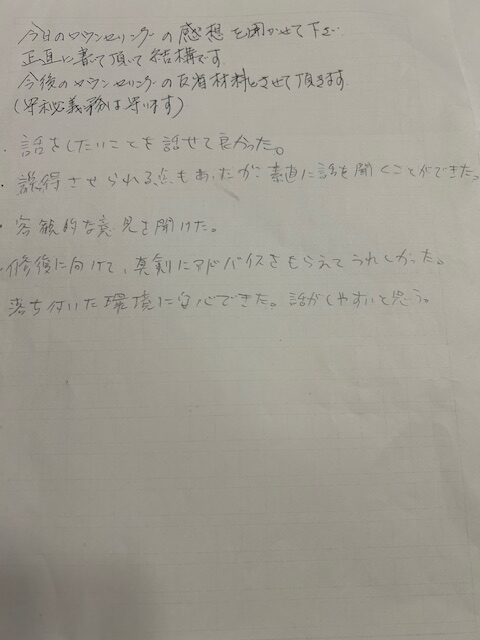 今日のカウンセリングの感想を聞かせて下さい
正直に書て頂いて結構です。
今後のカウンセリングの反省材料とさせて頂きます
(守秘義務は守います)
・話をしたいことを話せて良かった。
・説得させられる点もあったが、素直に話を聞くことができた。
・客観的な意見を聞けた。
・修復に向けて、真剣にアドバイスをもらえてうれしかった。
落ち付いた環境に安心できた。話がしやすいと思う。